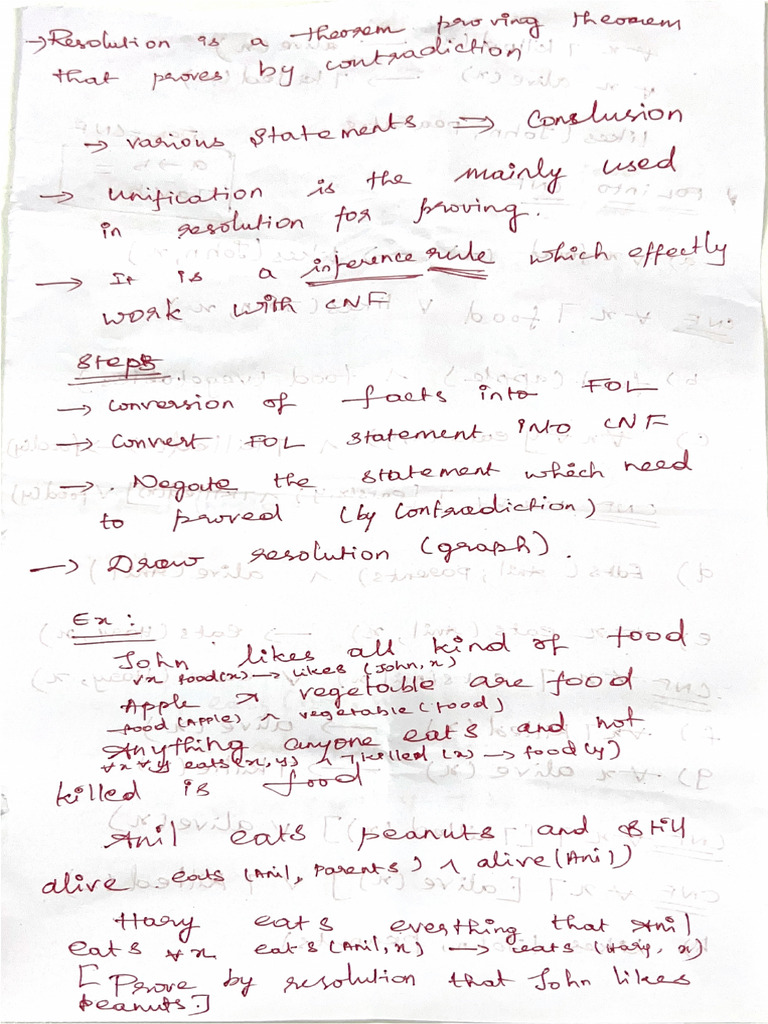 → Resolution is a theorem proving theorem
that proves by contradiction
→ various statements ⇒ Conslusion
→ unification is the mainly used
in resolution for proving.
→ It is a inference rule which effectly
work with CNF
Steps
→ conversion of facts into FOL
→ convert FOL statement into CNF
→ . Negate the statement which need
to proved (by Contradiction)
→ Draw resolution (graph).
Ex :
John likes all kind of food
∀x food(x) → likes (John, x)
Apple & vegetable are food
food (Apple) ∧ vegetable (food)
Anything anyone eats and not
∀x ∀y eats(x, y) ∧ ¬killed (x) → food (y)
killed is food
Anil eats peanuts and still
alive eats (Anil, Parents) ∧ alive (Anil)
Hary eats everthing that Anil
eats ∀x eats (Anil, x) → eats (Hary, x)
[Prove by resolution that John likes
peanuts.]